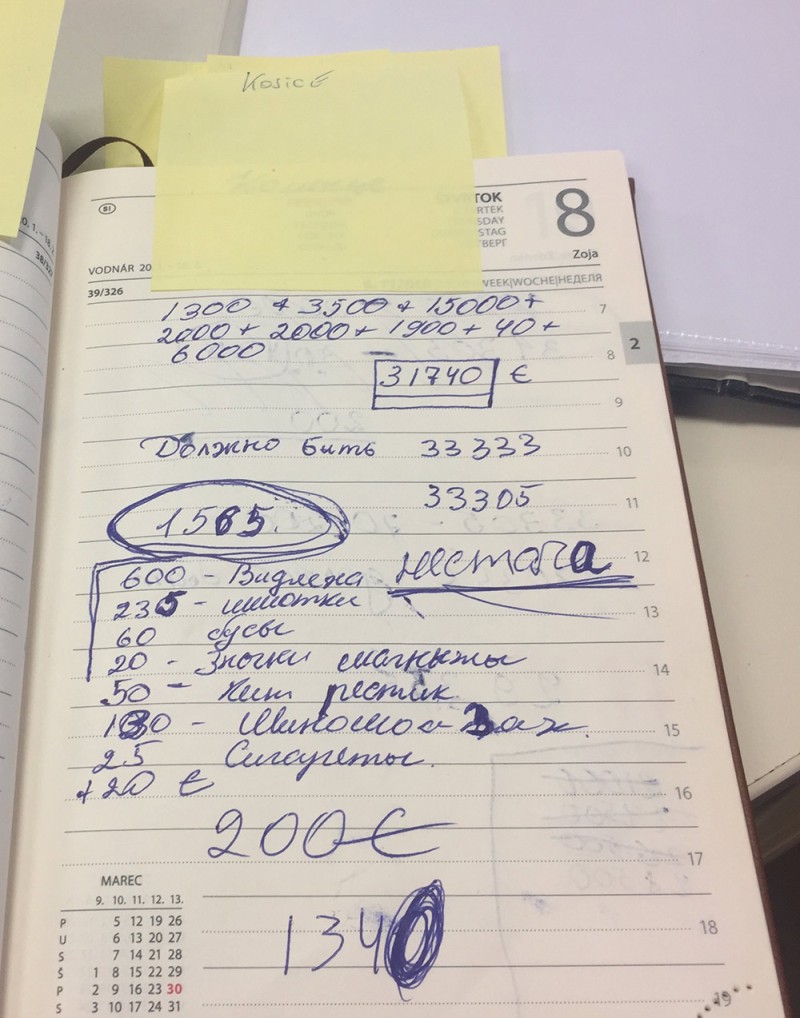 Kosice
TOK
RTEK
SDAY
STAG
ТВЕРГ
8
Zoja
VODNÁR 20
39/326
WEEK|WOCHE|НЕДЕЛЯ
38/32
1300 + 3500 + 15000 +
7
2000 + 2000 + 1900 + 40 +
6000
8
2
31740 €
9
Должно бить 33333
10
33305
11
1565
12
600 - Видлежа нестача
235 -
13
60 бусы
20 - Значки магниты
14
50 -
15
130 -
25 Сигареты.
+20 €
16
200€
17
MAREC
9. 10. 11. 12. 13.
P 5 12 19 26
U 6 13 20 27
S 7 14 21 28
Š 1 8 15 22 29
P 2 9 16 23 30
S 3 10 17 24 31
1340
18
19